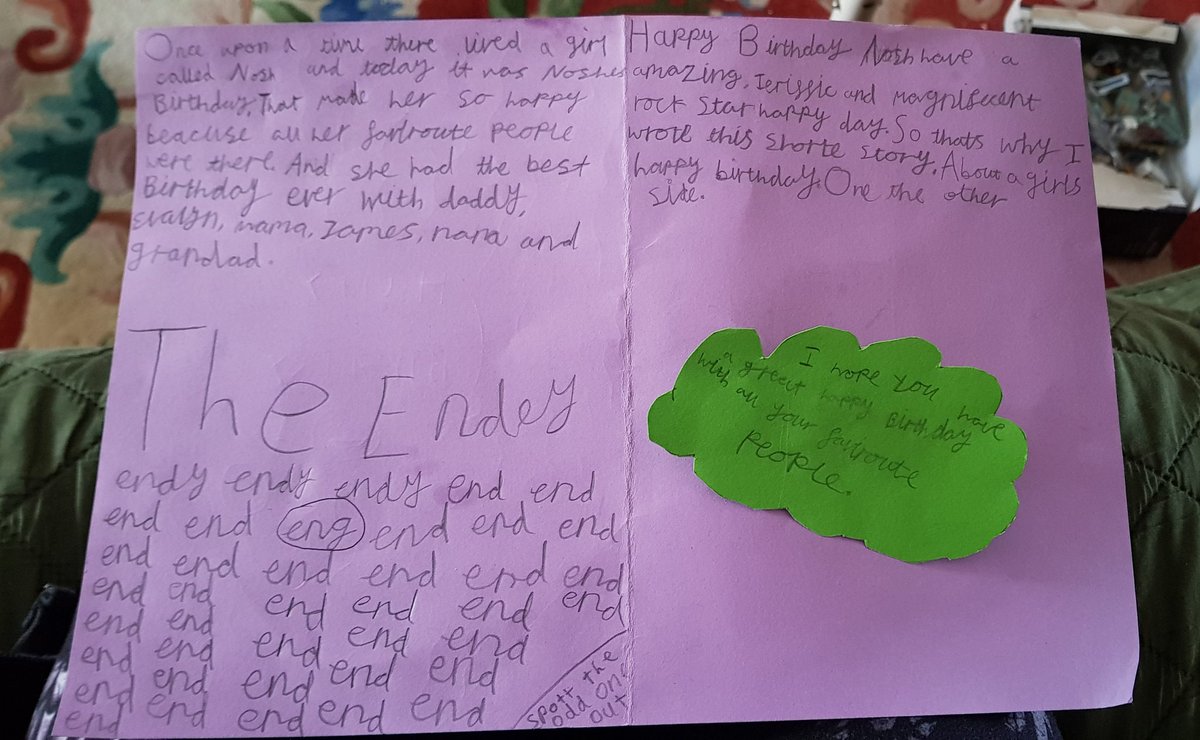 Once upon a time there lived a girl
called Nosh and today it was Noshes
Birthday, That made her so happy
beacuse all her fartroute people
were there. And she had the best
Birthday ever with daddy,
Evalyn, mama, James, nana and
grandad.
The Endey
endy endy endy end end
end end eng end end end
end end end end end end
end end end end end end
end end end end end
end end end end end
end end end end end
end end end end end
spott the
odd one
out
Happy Birthday Nosh have a
amazing, Terissic and magnificent
rock star happy day. So thats why I
wrote this shorte story. About a girls
happy birthday. One the other
side.
I hope you have
a greet happy Birthday
with all your fartroute
People.